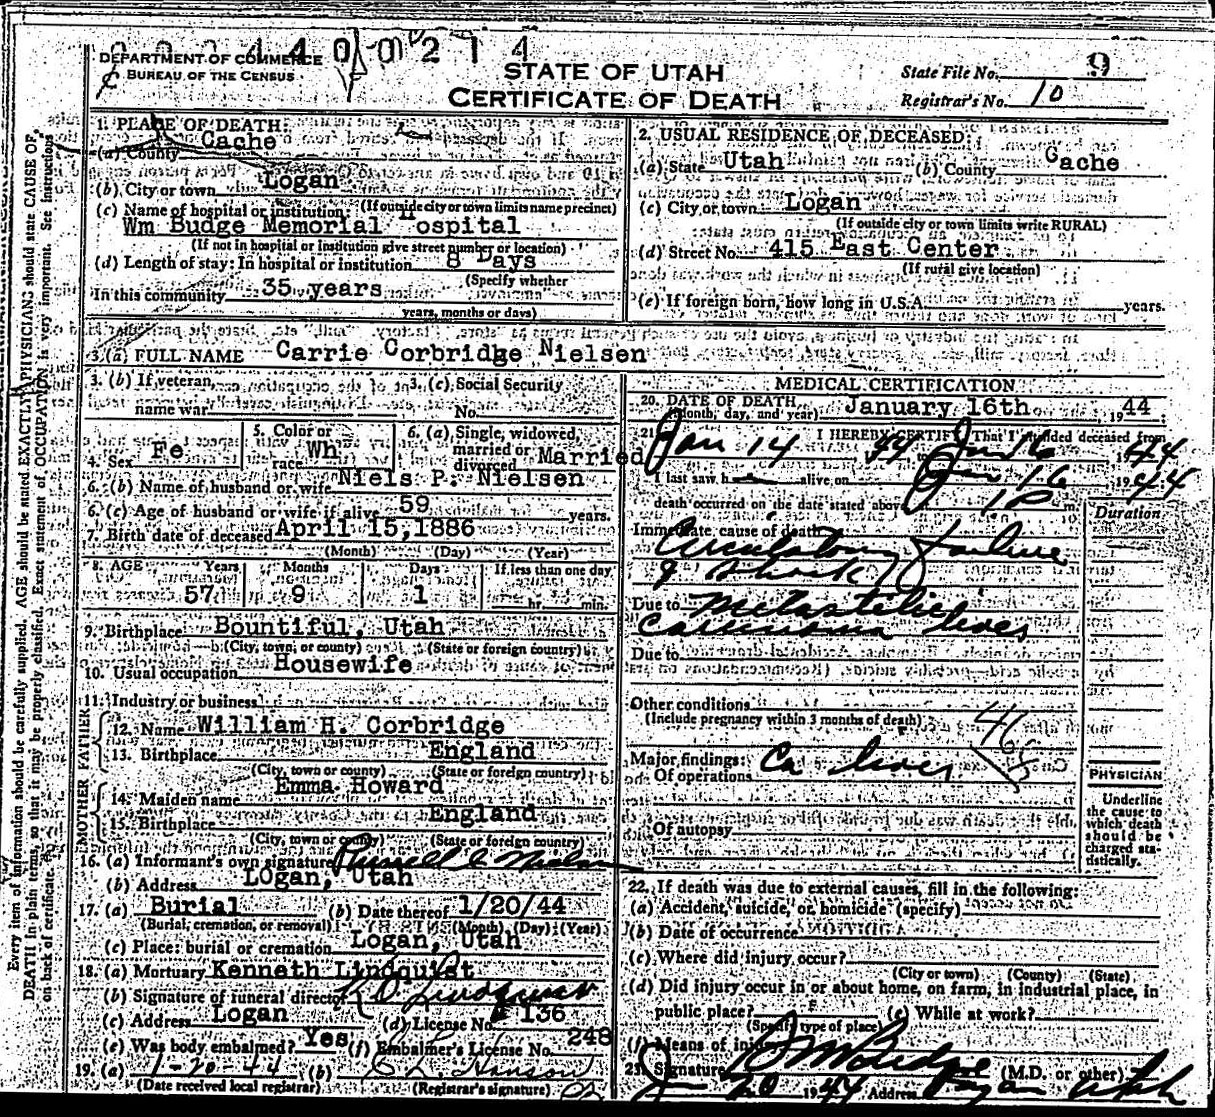 DEPARTMENT OF COMMERCE
BUREAU OF THE CENSUS
STATE OF UTAH
CERTIFICATE OF DEATH
State File No. 9
Registrar's No. 10
1. PLACE OF DEATH:
(a) County Cache
(b) City or town Logan
(If outside city or town limits name precinct)
(c) Name of hospital or institution:
Wm Budge Memorial Hospital
(If not in hospital or institution give street number or location)
(d) Length of stay: In hospital or institution 8 Days
(Specify whether
In this community 35 years
years, months or days)
2. USUAL RESIDENCE OF DECEASED:
(a) State Utah (b) County Cache
(c) City or town Logan
(If outside city or town limits write RURAL)
(d) Street No. 415 East Center
(If rural give location)
(e) If foreign born, how long in U.S.A. years.
3. (a) FULL NAME Carrie Corbridge Nielsen
3. (b) If veteran, name war
3. (c) Social Security No.
4. Sex Fe
5. Color or race Wh
6. (a) Single, widowed, married or divorced Married
6. (b) Name of husband or wife Niels P. Nielsen
6. (c) Age of husband or wife if alive 59 years.
7. Birth date of deceased April 15, 1886
(Month) (Day) (Year)
8. AGE Years Months Days If less than one day
57 9 1 hr. min.
9. Birthplace Bountiful, Utah
(City, town, or county) (State or foreign country)
10. Usual occupation Housewife
11. Industry or business
FATHER
12. Name William H. Corbridge
13. Birthplace England
(City, town or county) (State or foreign country)
MOTHER
14. Maiden name Emma Howard
15. Birthplace England
(City, town or county) (State or foreign country)
16. (a) Informant's own signature Russell C Nielsen
(b) Address LOgan, Utah
17. (a) Burial (b) Date thereof 1/20/44
(Burial, cremation, or removal) (Month) (Day) (Year)
(c) Place: burial or cremation Logan, Utah
18. (a) Mortuary Kenneth Lindquist
(b) Signature of funeral director Lindquist
(c) Address Logan (d) License No. 136
(e) Was body embalmed? Yes (f) Embalmer's License No. 248
19. (a) 1-20-44 (b) Hanson
(Date received local registrar) (Registrar's signature)
MEDICAL CERTIFICATION
20. DATE OF DEATH
(Month, day, and year) January 16th 1944
21. I HEREBY CERTIFY That I attended deceased from
Jan 14 44 Jan 16 1944
I last saw h alive on Jan 16 1944
death occurred on the date stated above m.
Duration
Immediate cause of death
Circulatory failure
& shock
Due to Metastatic
carcinoma liver
Due to
Other conditions
(Include pregnancy within 3 months of death)
Major findings:
Of operations Ca liver
Of autopsy
PHYSICIAN
Underline
the cause to
which death
should be
charged sta-
tistically.
22. If death was due to external causes, fill in the following:
(a) Accident, suicide, or homicide (specify)
(b) Date of occurrence
(c) Where did injury occur?
(City or town) (County) (State)
(d) Did injury occur in or about home, on farm, in industrial place, in
public place? (e) While at work?
(Specify type of place)
(f) Means of injury
23. Signature Budge (M.D. or other)
Jan 20 1944 Address Logan Utah
Every item of information should be carefully supplied. AGE should be stated EXACTLY. PHYSICIAN should state CAUSE OF
DEATH in plain terms, so that it may be properly classified. Exact statement of OCCUPATION is very important. See instructions
on back of certificate.